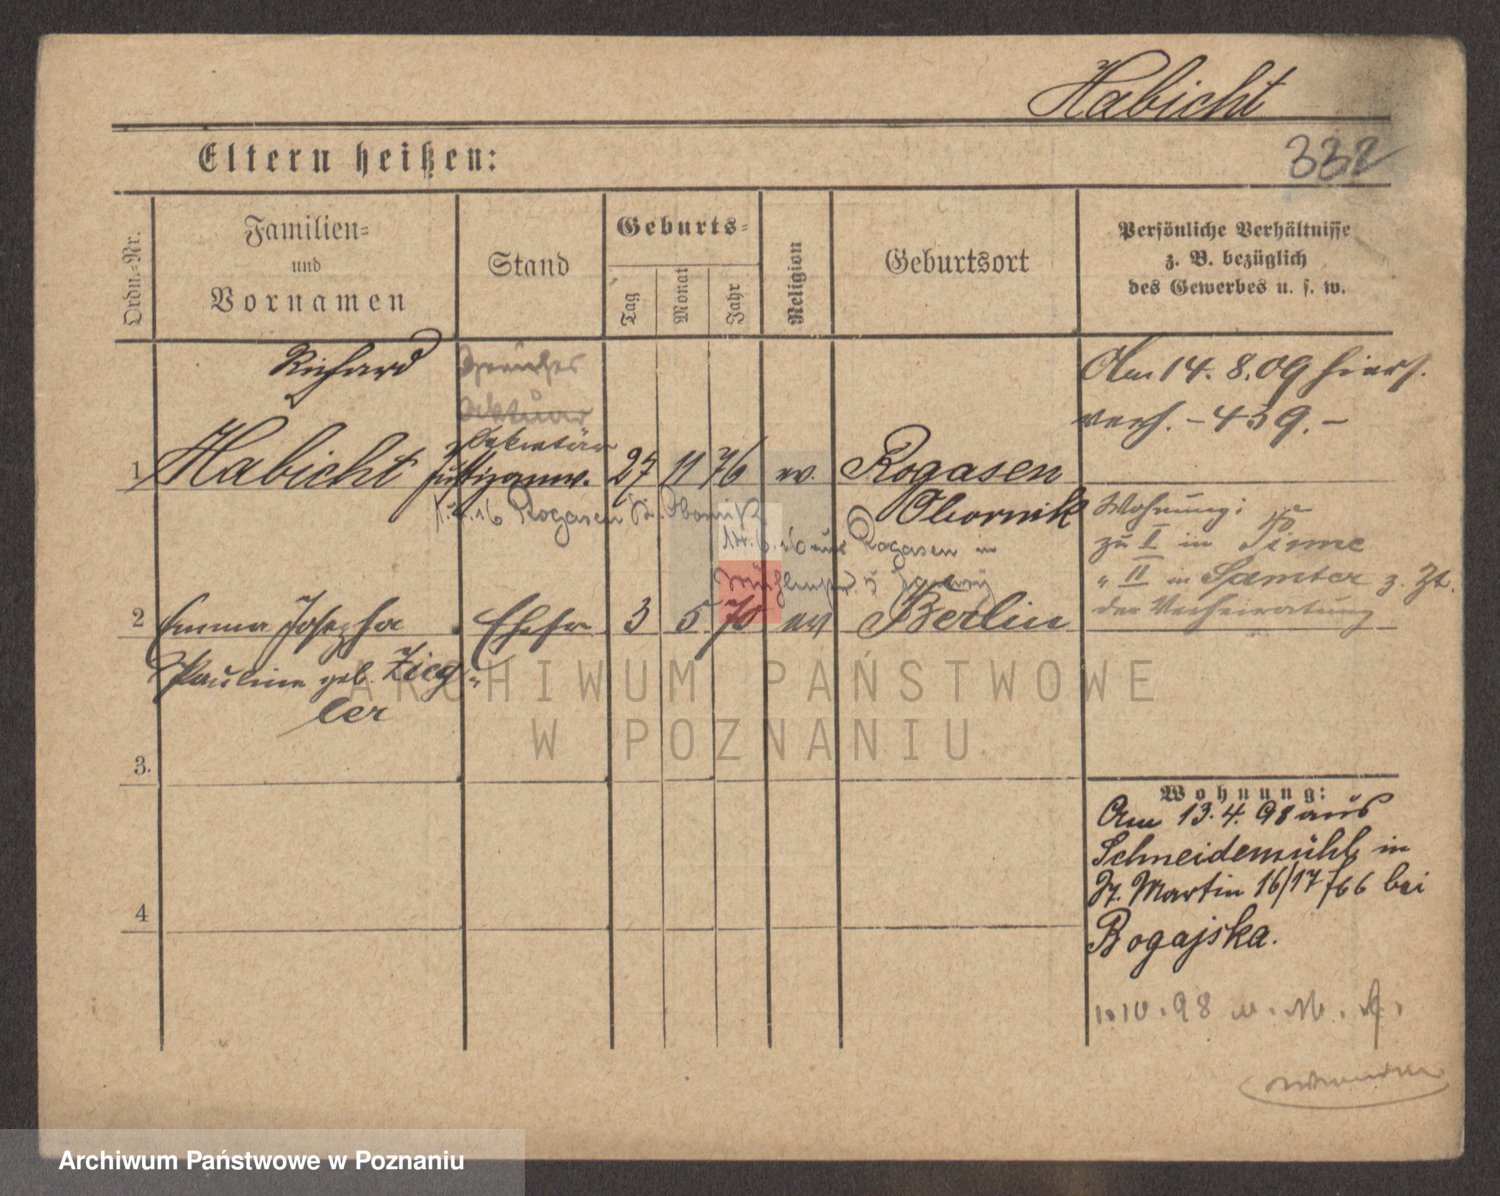 Habicht
332
Eltern heißen:
Ordn.=Nr.
Familien=
und
Vornamen
Stand
Geburts=
Tag
Monat
Jahr
Religion
Geburtsort
Persönliche Verhältnisse
z. B. bezüglich
des Gewerbes u. s. w.
Richard
Aktuar
Sekretär
1 Habicht Justizanw. 27 11 76 ev. Rogasen
Obornik
1.4.16 Rogasen Kr. Obornik
14.6.16 aus Rogasen in
Am 14. 8. 09 hiers.
verh. - 439. -
Wohnung:
zu I in Pinne
" II in Samter z. Zt.
der Verheiratung
2 Emma Josepha Ehefr 3 5 70 ev Berlin
Pauline geb. Zieg-
ler
3.
4
Wohnung:
Am 13. 4. 98 aus
Schneidemühl in
St. Martin 16/17 /66 bei
Bogajska.
1. 10. 98 u. M. A.
ARCHIWUM PAŃSTWOWE
W POZNANIU
Archiwum Państwowe w Poznaniu